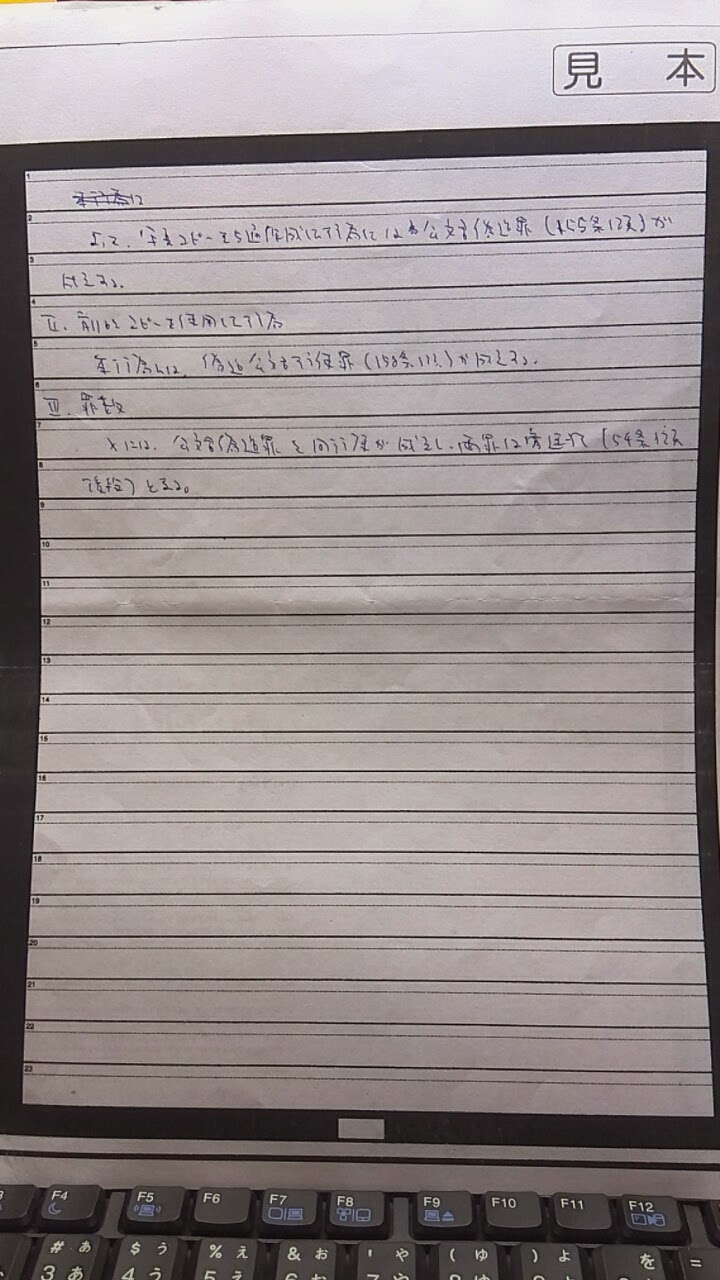 見 本
1
本行為に
2
よって、写真コピーを5通作成した行為には公文書偽造罪(155条1項)が
3
成立する。
4
Ⅱ. 前記コピーを使用した行為
5
本行為には、偽造公文書行使罪(158条1項)が成立する。
6
Ⅲ. 罪数
7
Xには、公文書偽造罪と同行使が成立し、両罪は牽連犯(54条1項
8
後段)となる。
9
10
11
12
13
14
15
16
17
18
19
20
21
22
23
F4
F5
F6
F7
F8
F9
F10
F11
F12
# あ $ う % え & お ' や ( ゆ ) よ を =
3 あ 4 う 5 え